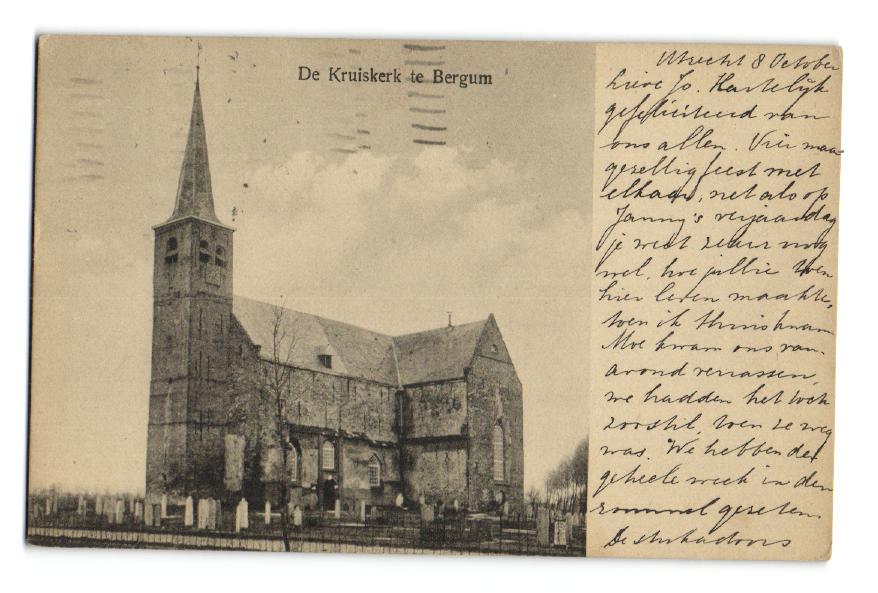 De Kruiskerk te Bergum
Utrecht 8 October
Lieve Jo. Hartelijk
gefeliciteerd van
ons allen. Vier maar
gezellig feest met
elkaar, net als op
Janny's verjaardag
je weet zeker nog
wel, hoe jullie toen
hier leven maakte,
toen ik thuis kwam
Moe kwam ons van-
avond verrassen,
we hadden het toch
zoo stil, toen ze weg
was. We hebben de
geheele week in den
rommel gezeten.
De